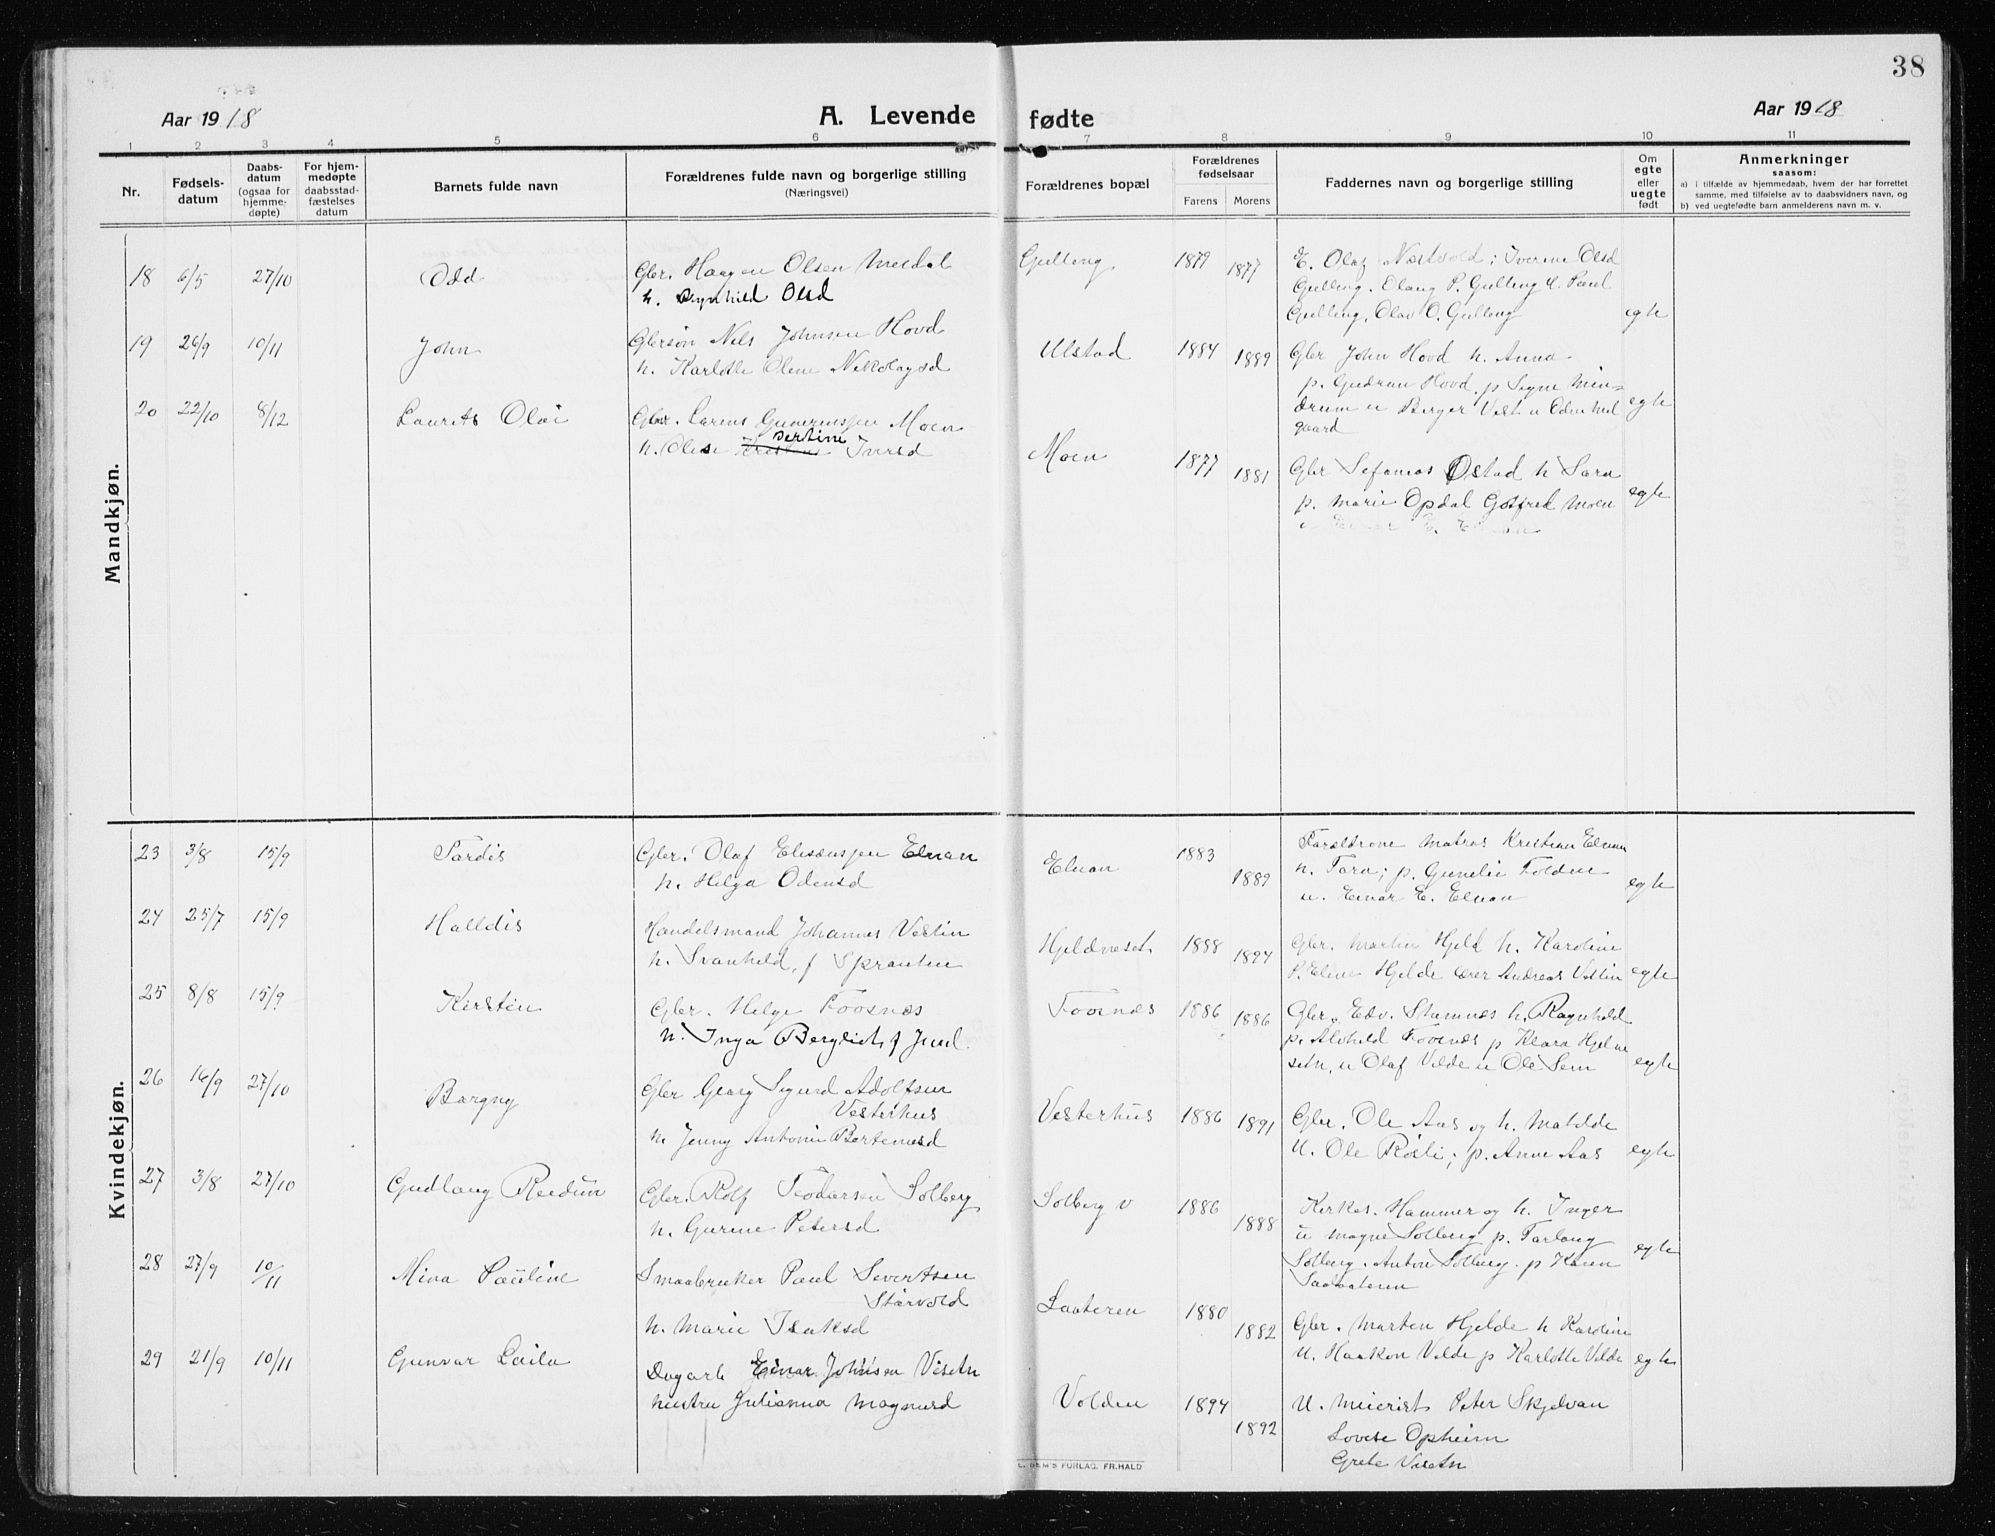 38
Aar 1918
A. Levende fødte
Aar 1918
1 2 3 4 5 6 7 8 9 10 11
Nr.
Fødsels-
datum
Daabs-
datum
(ogsaa for
hjemme-
døpte)
For hjem-
medøpte
daabsstad-
fæstelses
datum
Barnets fulde navn
Forældrenes fulde navn og borgerlige stilling
(Næringsvei)
Forældrenes bopæl
Forældrenes
fødselsaar
Farens Morens
Faddernes navn og borgerlige stilling
Om
egte
eller
uegte
født
Anmerkninger
saasom:
a) i tilfælde av hjemmedaab, hvem der har forrettet
samme, med tilføielse av to daabsvidners navn, og
b) ved uegtefødte barn anmelderens navn m. v.
Mandkjøn.
18 6/5 27/10 Odd
Gbr. Haagen Olsen Meldal
h. Ragnhild Olsd
Gulling 1879 1877
E. Olaf Nestvold; Iverine Olsd
Gulling. Olaug P. Gulling E. Paul
Gulling, Olav O. Gulling
egte
19 26/9 10/11 John
Gbrsøn Nels Johnsen Hovd
h. Karlotte Oline Nikolaysd
Ulstad 1884 1889
Gbr John Hovd h. Anna
p. Gudrun Hovd, p Signe Min-
drum u Berger Vist u Eden hed
gaard
egte
20 22/10 8/12 Laurits Olai
Gbr. Lorens Gunerinssen Moen
h. Oline Bertine Iversd
Moen 1877 1881
Gbr Sefanias Østad h Sara
p. Marie Opdal Gotfred Moen
egte
Kvindekjøn.
23 3/8 15/9 Tordis
Gbr. Olaf Eliseussen Elnan
h. Helga Odensd
Elnan 1883 1889
Forældrene Matros Kristian Elnan
h. Tora; p. Gunelie Folden
u. Einar E. Elnan
egte
24 25/7 15/9 Halldis
Handelsmand Johannes Vestin
h. Svanhild, f Sprauten
Hjeldneset 1888 1894
Gbr. Martin Hjeld h. Karoline
P. Eline Hjelde lærer Andreas Vestin
egte
25 8/8 15/9 Kirsten
Gbr. Helge Foosnæs
h. Inga Bergliot f Juul.
Foosnæs 1886 1886
Gbr. Edv. Skamnæs h. Ragnhild
p. Alvhild Foosnæs p Klara Hjelne
setn, u Olaf Velde u Ole Sem
egte
26 14/9 27/10 Borgny
Gbr Georg Sigurd Adolfsen
Vesterhus
h. Jenny Antonie Bertinusd
Vesterhus 1886 1891
Gbr. Ole Aas og h. Matilde
U. Ole Røsli; p. Anne Aas
egte
27 3/8 27/10 Gudlaug Reidun
Gbr. Rolf Teodorsen Solberg
h. Gurine Petersd
Solberg v 1886 1888
Kirkes. Hammer og h. Inger
u Magne Solberg p. Torlaug
Solberg. Anton Solberg. p Karen
Saataateren
egte
28 27/9 10/11 Mina Pauline
Smaabruker Paul Severtsen
Storvold
h. Marie Isaksd
Saateren 1880 1882
Gbr. Morten Hjelde h Karoline
U. Haakon Velde p Karlotte Velde
egte
29 21/9 10/11 Gunvor Laila
Dagarb Einar Johnsen Visetn
hustru Julianna Magnusd
Volden 1894 1892
U. Meierist Peter Skjelvan
Lovise Opheim
Grete Visetn
FORLAG. FR.HALD